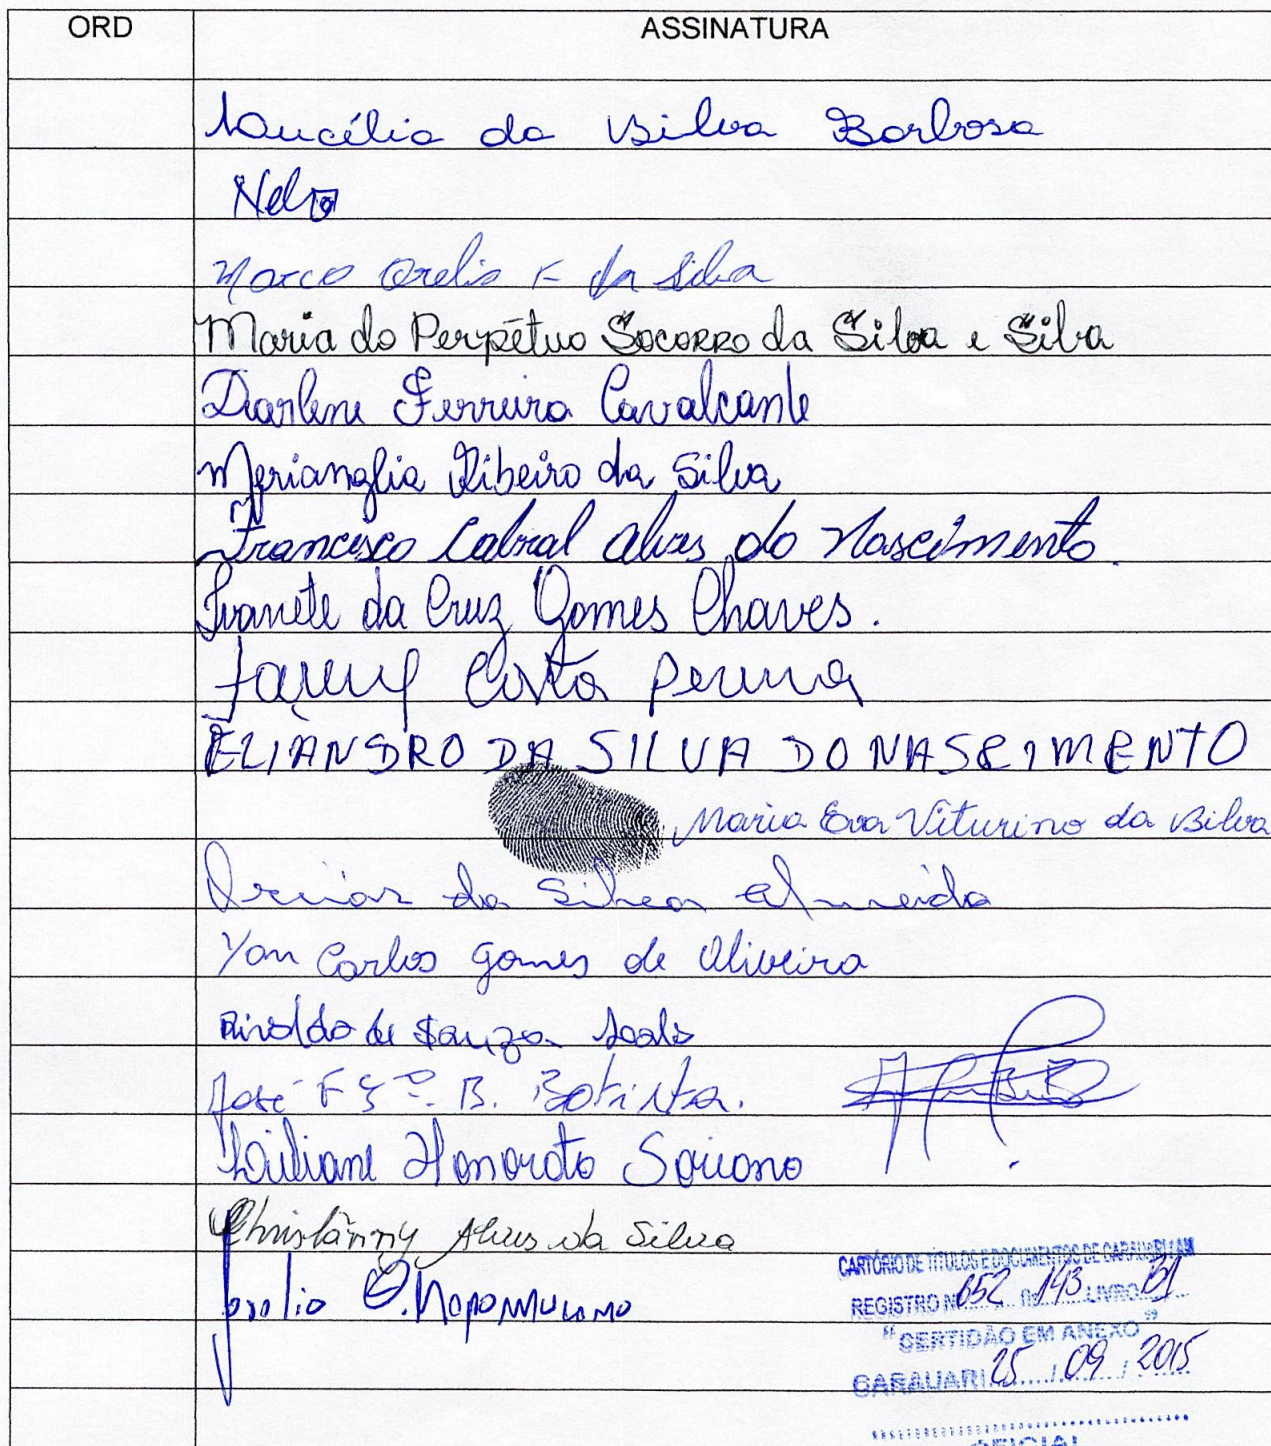 ORD ASSINATURA
Laucélia da Silva Barbosa
Nelo
Marco Orelio F da Silva
Maria do Perpétuo Socorro da Silva e Silva
Darlene Ferreira Cavalcante
Merianglia Ribeiro da Silva
Francisco Cabral Alves do Nascimento.
Ivanete da Cruz Gomes Chaves.
Costa
ELIANDRO DA SILVA DO NASCIMENTO
Maria Eva Viturino da Silva
da Silva Almeida
Yan Carlos Gomes de Oliveira
de Souza
José B. Batista.
Honorato Soriano
Christânny Alves da Silva
CARTÓRIO DE TÍTULOS E DOCUMENTOS DE CARAUARI/AM
REGISTRO Nº 652 fls 143 LIVRO B1
"CERTIDÃO EM ANEXO"
CARAUARI 25 / 09 / 2015
OFICIAL